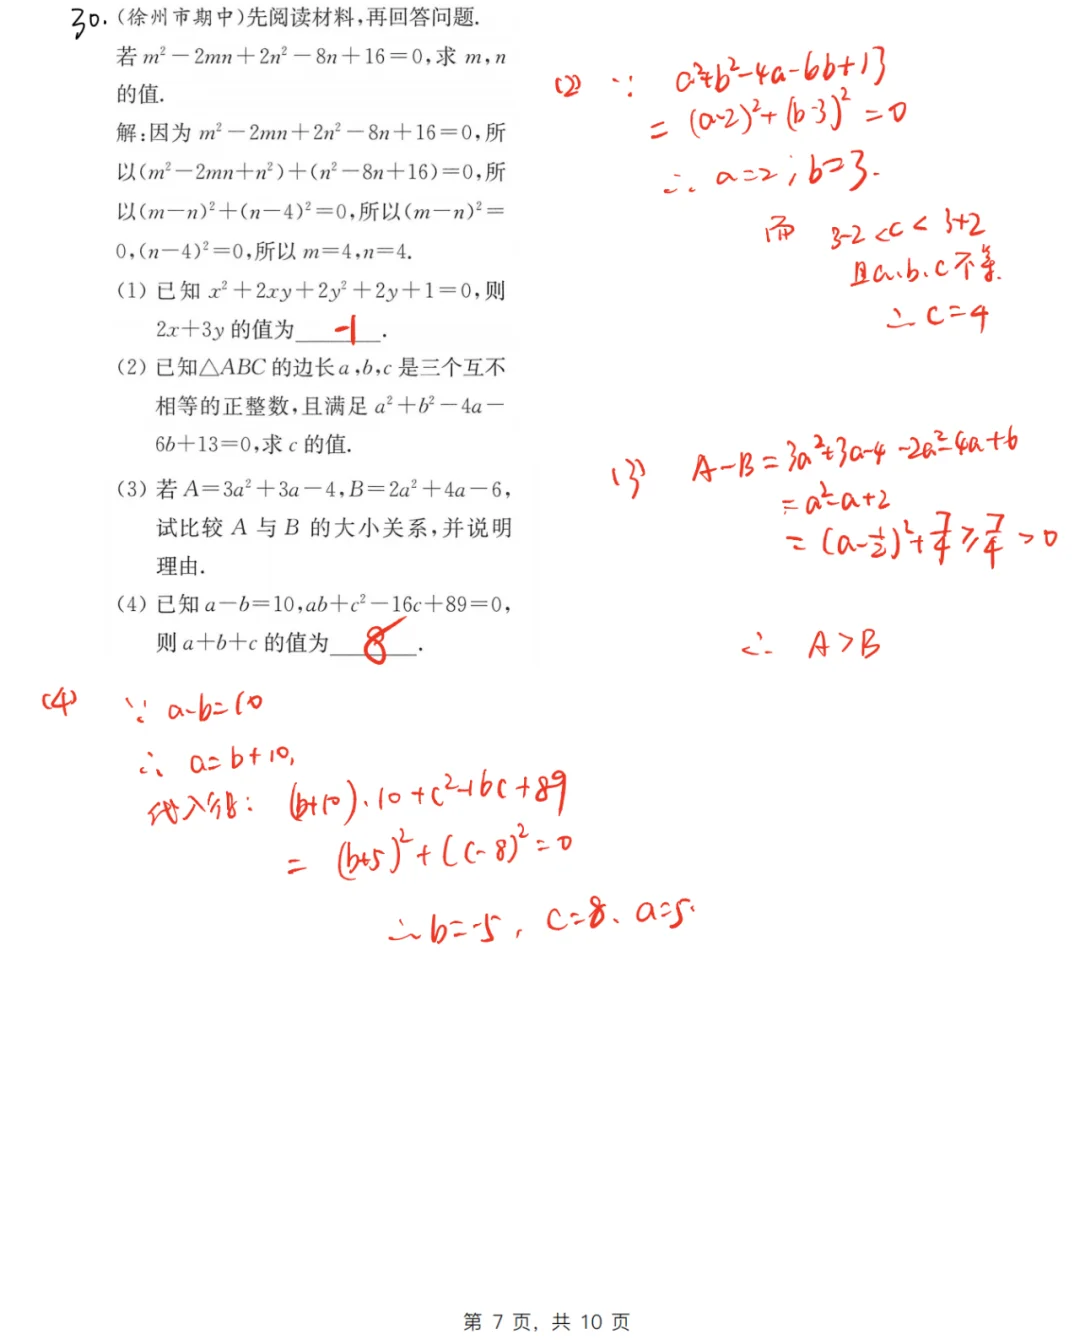 30.(徐州市期中)先阅读材料,再回答问题.
若 m²－2mn＋2n²－8n＋16＝0,求 m,n
的值.
解:因为 m²－2mn＋2n²－8n＋16＝0,所
以(m²－2mn＋n²)＋(n²－8n＋16)＝0,所
以(m－n)²＋(n－4)²＝0,所以(m－n)²＝
0,(n－4)²＝0,所以 m＝4,n＝4.
(1) 已知 x²＋2xy＋2y²＋2y＋1＝0,则
2x＋3y 的值为 -1 .
(2) 已知△ABC 的边长 a,b,c 是三个互不
相等的正整数,且满足 a²＋b²－4a－
6b＋13＝0,求 c 的值.
(3) 若 A＝3a²＋3a－4,B＝2a²＋4a－6,
试比较 A 与 B 的大小关系,并说明
理由.
(4) 已知 a－b＝10,ab＋c²－16c＋89＝0,
则 a＋b＋c 的值为 8 .
(2) ∵ a²+b²-4a-6b+13
= (a-2)²+(b-3)² = 0
∴ a=2; b=3.
而 3-2 < c < 3+2
且a、b、c 不等.
∴ c=4
(3) A-B = 3a²+3a-4-2a²-4a+6
= a²-a+2
= (a-1/2)²+7/4 ≥ 7/4 > 0
∴ A>B
(4) ∵ a-b=10
∴ a=b+10,
代入得: (b+10)·10+c²-16c+89
= (b+5)²+(c-8)²=0
∴ b=-5, c=8、a=5.
第 7 页, 共 10 页